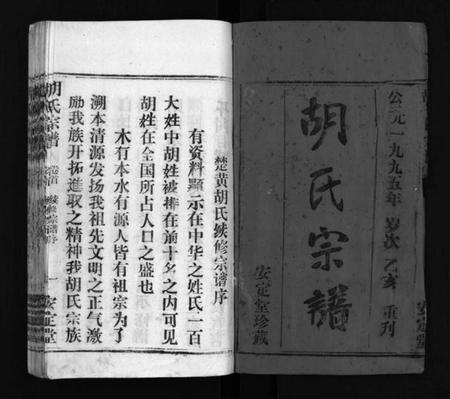 公元一九九五年 岁次 乙亥 重刊
胡氏宗譜
安定堂珍藏
安定堂
楚黄胡氏续修宗谱序
有资料顯示在中华之姓氏一百
大姓中胡姓被排在前十名之内可见
胡姓在全国所占人口之盛也
木有本水有源人皆有祖宗为了
溯本清源发扬我祖先文明之正气激
励我族开拓進取之精神我胡氏宗族
胡氏宗谱 卷首 续修宗谱序 一 安定堂